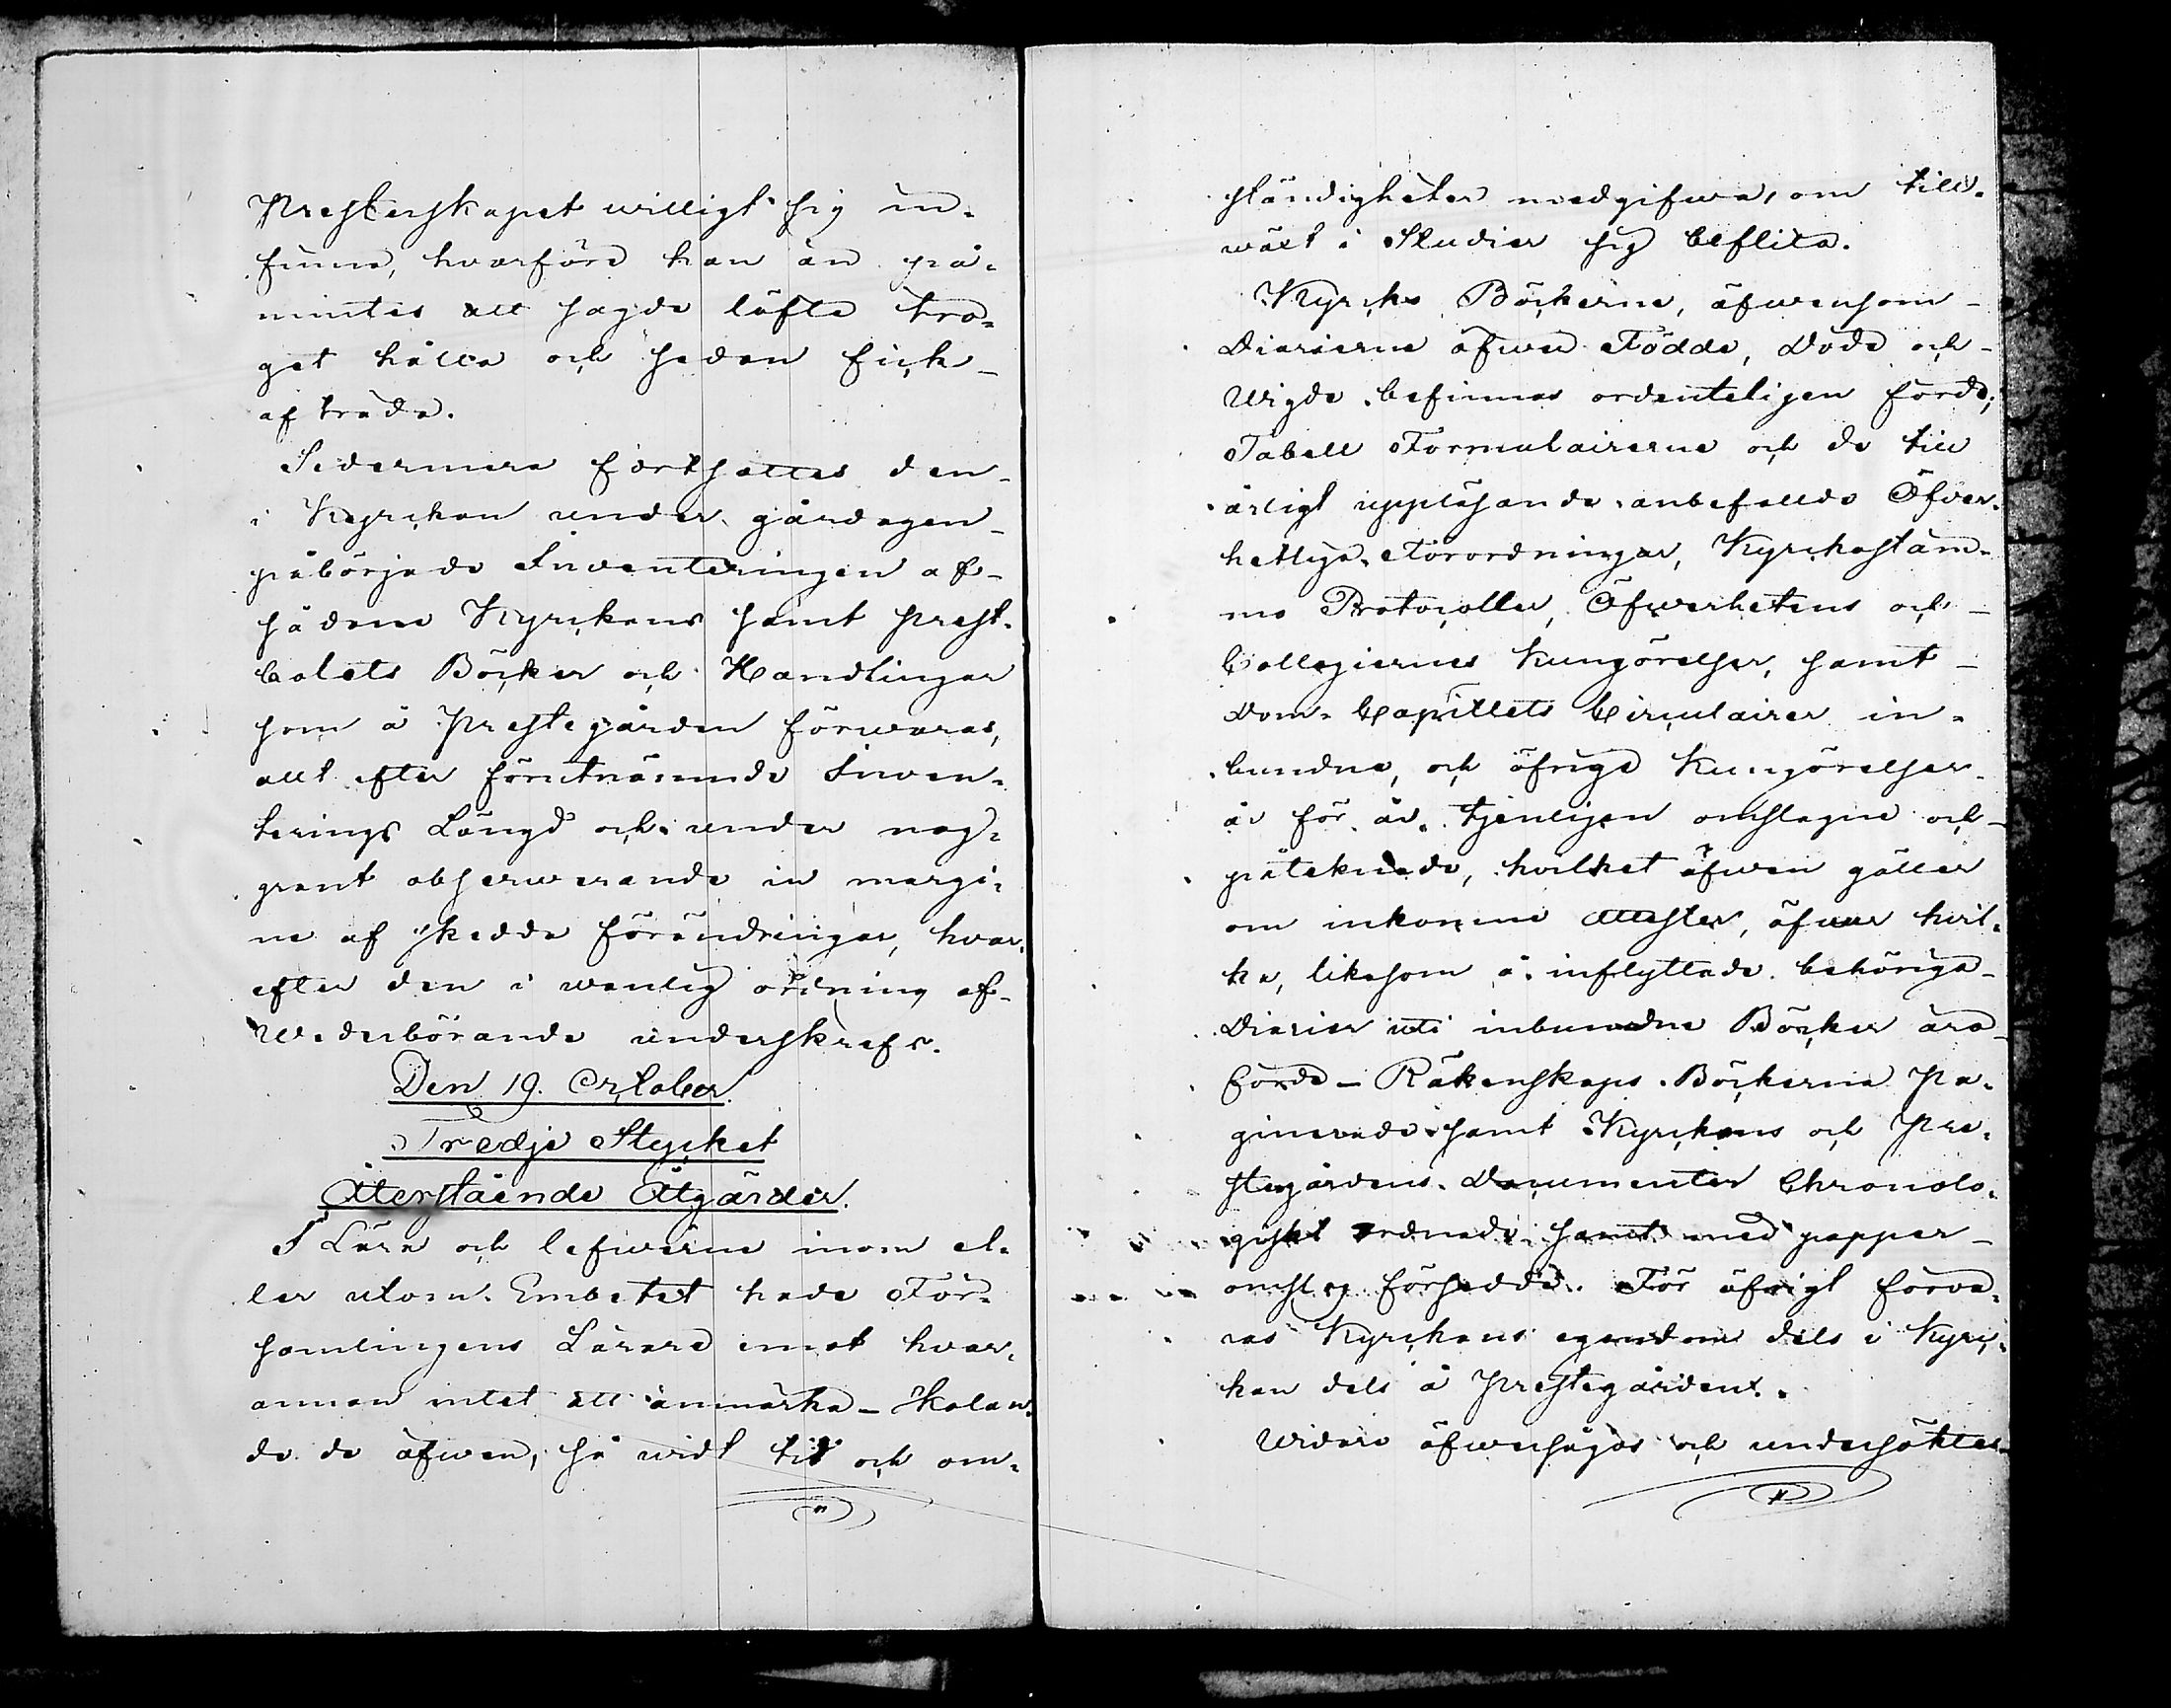 Presterskapet willigt sig in-
finna, hvarföre han än på-
mintes att sagde löfte tro-
get hålla och sedan fick
afträda.
Sedermera fortsattes den
i Kyrckan under gårdagen
påbörjade Inventeringen af
sådane Kyrckans samt prest-
bolets Böcker och Handlingar
som å Prestegården förwaras,
allt efter förutnämnde Inven-
terings Längd och under nog-
grant observerande in margi-
ne af skedda förändringar, hvar-
efter den i wanlig ordning af
Wederbörande underskrefs.
Den 19. October.
Tredje Stycket
Återstående Åtgärder.
I Lära och lefwerne inom el-
ler utom Embetet hade För-
samlingens Lärare emot hvar-
annan intet att anmärka - Skolan-
de de äfwen, så widt tid och om-
ständigheter medgifwa, om till-
wäxt i Studier sig beflita.
Kyrcko Böckerne, äfwensom
Diarierne öfwer Födde, Döde och
Wigde befinnas ordenteligen förde;
Tabell Formulairerne och de till
årligt uppläsande anbefallde Öfver-
hetliga Förordningar, Kyrckostäm-
mo Protocoller, Öfwerhetens och
Collegiernes Kungörelser, samt
Dom-Capitlets Circulairer in-
bundne, och öfrige Kungörelser
år för år tjenligen omslagne och
påteknade, hvilket äfwen gäller
om inkomne attester, öfwer hvil-
ka, likasom å inflyttade behöriga
Diarier uti inbundne Böcker äro
förde - Räkenskaps Böckerne Pa-
ginerade samt Kyrckans och Pre-
stegårdens Documenter Chronolo-
giskt ordnade samt med papper
omslag försedde. För öfrigt förva-
ras Kyrckans egendom dels i Kyrc-
kan dels å Prestegården.
Widare öfwersågos och undersöktes